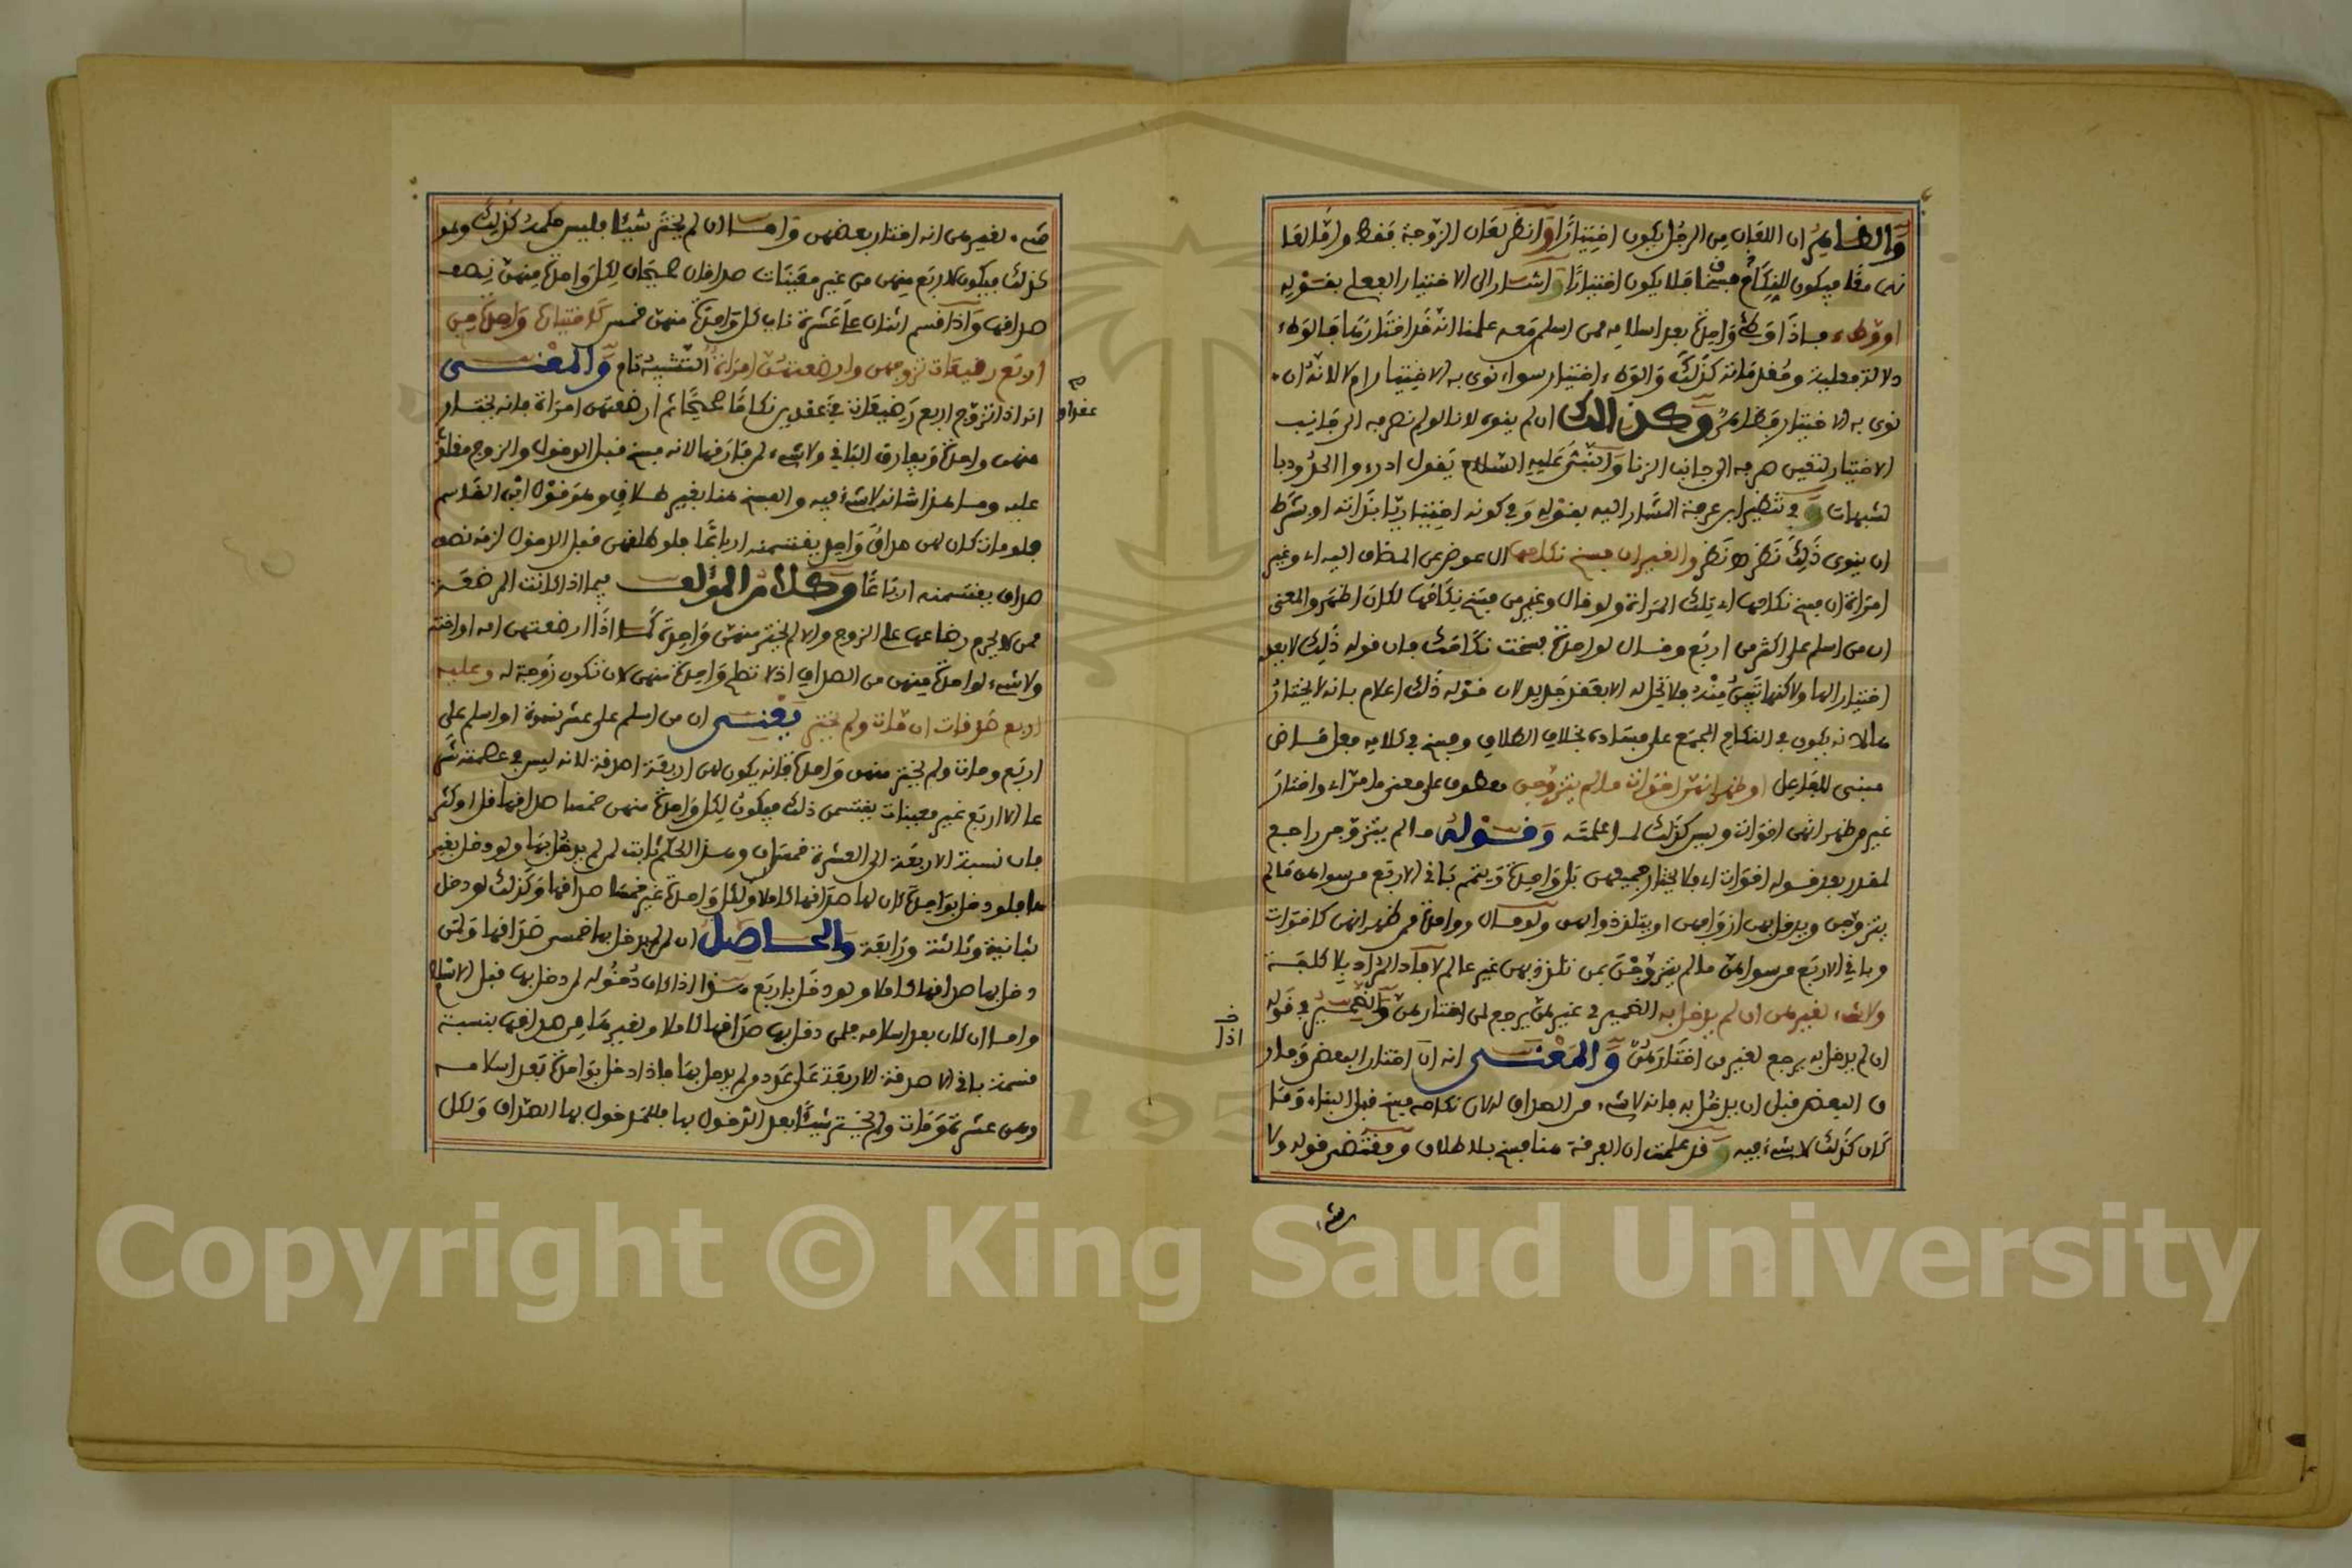 والظاهر ان اللعان من الرجل يكون اختيارا وانظر لعان الزوجة فقط واما لعا
نهما معا فيكون للنكاح فسخا فلا يكون اختيارا واشار الى الاختيار الفعلي بقوله
او وطء فاذا وطئ واحدة بعد اسلامه ممن اسلم معه علمنا انه قد اختارها فالوطء
دلالة فعلية ومقدماته كذلك والوطء اختيار سواء نوى به الاختيار ام لا لانه ان
نوى به الاختيار فظاهر وكذلك ان لم ينوى لانا لو لم نصرفه الى جانب
الاختيار لتعين صرفه الى جانب الزنا والنبي عليه السلام يقول ادرءوا الحدود با
لشبهات وفي تنظير ابن عرفة المشار اليه بقوله وفي كونه اختيارا بذاته او بشرط
ان ينوى ذلك نظر والغير ان فسخ نكاحها ال عوض عن المضاف اليه اي وغير
امراة ان فسخ نكاحها اي تلك المراة ولو قال وغير من فسخ نكاحها لكان اظهر والمعنى
ان من اسلم على اكثر من اربع وقال لواحدة فسخت نكاحك فان قوله ذلك لا يعد
اختيارا لها ولاكنها تبين منه فلا تحل له الا بعقد جديد لان قوله ذلك اعلام بانه لا يختار
ها لانه يكون في النكاح المجمع على فساده بخلاف الطلاق وفسخ في كلامه فعل ماض
مبني للفاعل او ظهر انهن اخوات ما لم يتزوجن معطوف على معنى ما مر اي واختار
غير من ظهر انهن اخوات وليس كذلك لما علمت وقوله ما لم يتزوجن راجع
لمقدر بعد قوله اخوات اي فلا يختار جميعهن بل واحدة ويتمم باقي الاربع من سواهن ما لم
يتزوجن ويدخل بهن ازواجهن او يتلذذوا بهن ولو قال وواحدة ممن ظهر انهن كاخوات
وباقي الاربع من سواهن ما لم يتزوجن بمن تلذذ بهن غير عالم لافاد المراد بلا كلفة
ولا شيء لغيرهن ان لم يدخل به الضمير في غيرهن يرجع لمن اختارهن والضمير في قوله
ان لم يدخل به يرجع لغير من اختارهن والمعنى انه ان اختار البعض وفار
ق البعض قبل ان يدخل به فانه لا شيء من الصداق لان نكاحه فسخ قبل البناء وما
كان كذلك لا شيء فيه وقد علمت ان الفرقة هنا فسخ بلا طلاق ومقتضى قوله ولا
شيء
اذا
شيء لغيرهن انه اختار بعضهن واما ان لم يختر شيئا فليس حكمه كذلك وهو
كذلك فيكون للاربع منهن من غير معينات صداقان صحيحان لكل واحدة منهن نصف
صداقها واذا قسم اثنان على عشرة ناب كل واحدة منهن خمس كاختياره واحدة من
اربع رضيعات تزوجهن وارضعتهن امراة التشبيه تام والمعنى
انه اذا تزوج اربع رضيعات في عقد نكاحا صحيحا ثم ارضعتهن امراة فانه يختار
عقد او
منهن واحدة ويفارق الباقي ولا شيء لمن فارقها لانه فسخ قبل الدخول والزوج مغلو
عليه وما هذا شانه لا شيء فيه والفسخ هنا بغير طلاق وهو قول ابن القاسم
فلو مات كان لهن صداق واحد يقتسمنه ارباعا فلو طلقهن قبل الدخول لزمه نصف
صداق يقتسمنه ارباعا وكلام المؤلف فيما اذا كانت المرضعة
ممن لا يحرم رضاعها على الزوج والا لم يختر منهن واحدة كما اذا ارضعتهن امه او اخته
ولا شيء لواحدة منهن من الصداق اذ لا تصلح واحدة منهن لان تكون زوجة له وعليه
اربع صدقات ان مات ولم يختر يعني ان من اسلم على عشر نسوة او اسلم على
اربع ومات ولم يختر منهن واحدة فانه يكون لهن اربعة اصدقة لانه ليس في عصمته شر
عا الا اربع غير معينات يقتسمن ذلك فيكون لكل واحدة منهن خمسا صداقها قل او كثر
فان نسبة الاربعة الى العشرة خمسان وهذا الحكم ثابت لمن لم يدخل بها ولو دخل بغير
ها فلو دخل بواحدة كان لها صداقها كاملا ولكل واحدة غيرها خمسا صداقها وكذلك لو دخل
بثانية وثالثة ورابعة والحاصل ان لمن لم يدخل بها خمسي صداقها ولمن
دخل بها صداقها كاملا ولو دخل باربع هذا اذا كان دخوله لمن دخل بها قبل الاسلام
واما ان كان بعد اسلامه فلمن دخل بها صداقها كاملا ولغيرها من صداقها بنسبة
قسمة باقي الاصدقة الاربعة على عدد من لم يدخل بها فاذا دخل بواحدة بعد اسلامه
وهن عشر ومات ولم يختر شيئا بعد الدخول بها فللمدخول بها الصداق ولكل